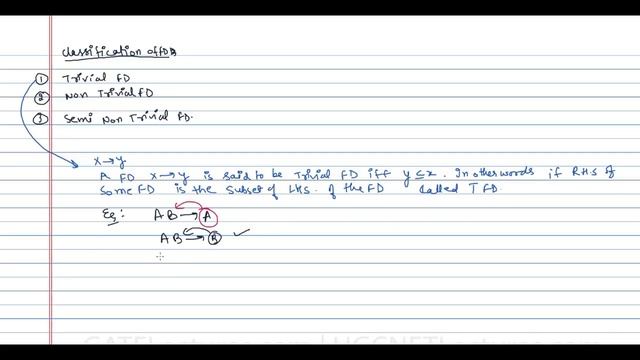 Classification of FDs
① Trivial FD
② Non Trivial FD
③ Semi Non Trivial FD.
X→Y
A FD X→Y is said to be Trivial FD iff Y⊆X. In other words if RHS of
Some FD is the subset of LHS. of the FD called T FD.
Eg: AB→A
AB→B ✓